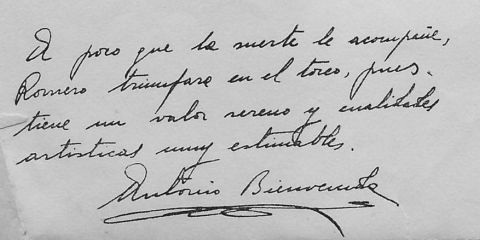 A poco que la suerte le acompañe,
Romero triunfara en el toreo, pues
tiene un valor sereno y cualidades
artisticas muy estimables.
Antonio Bienvenida